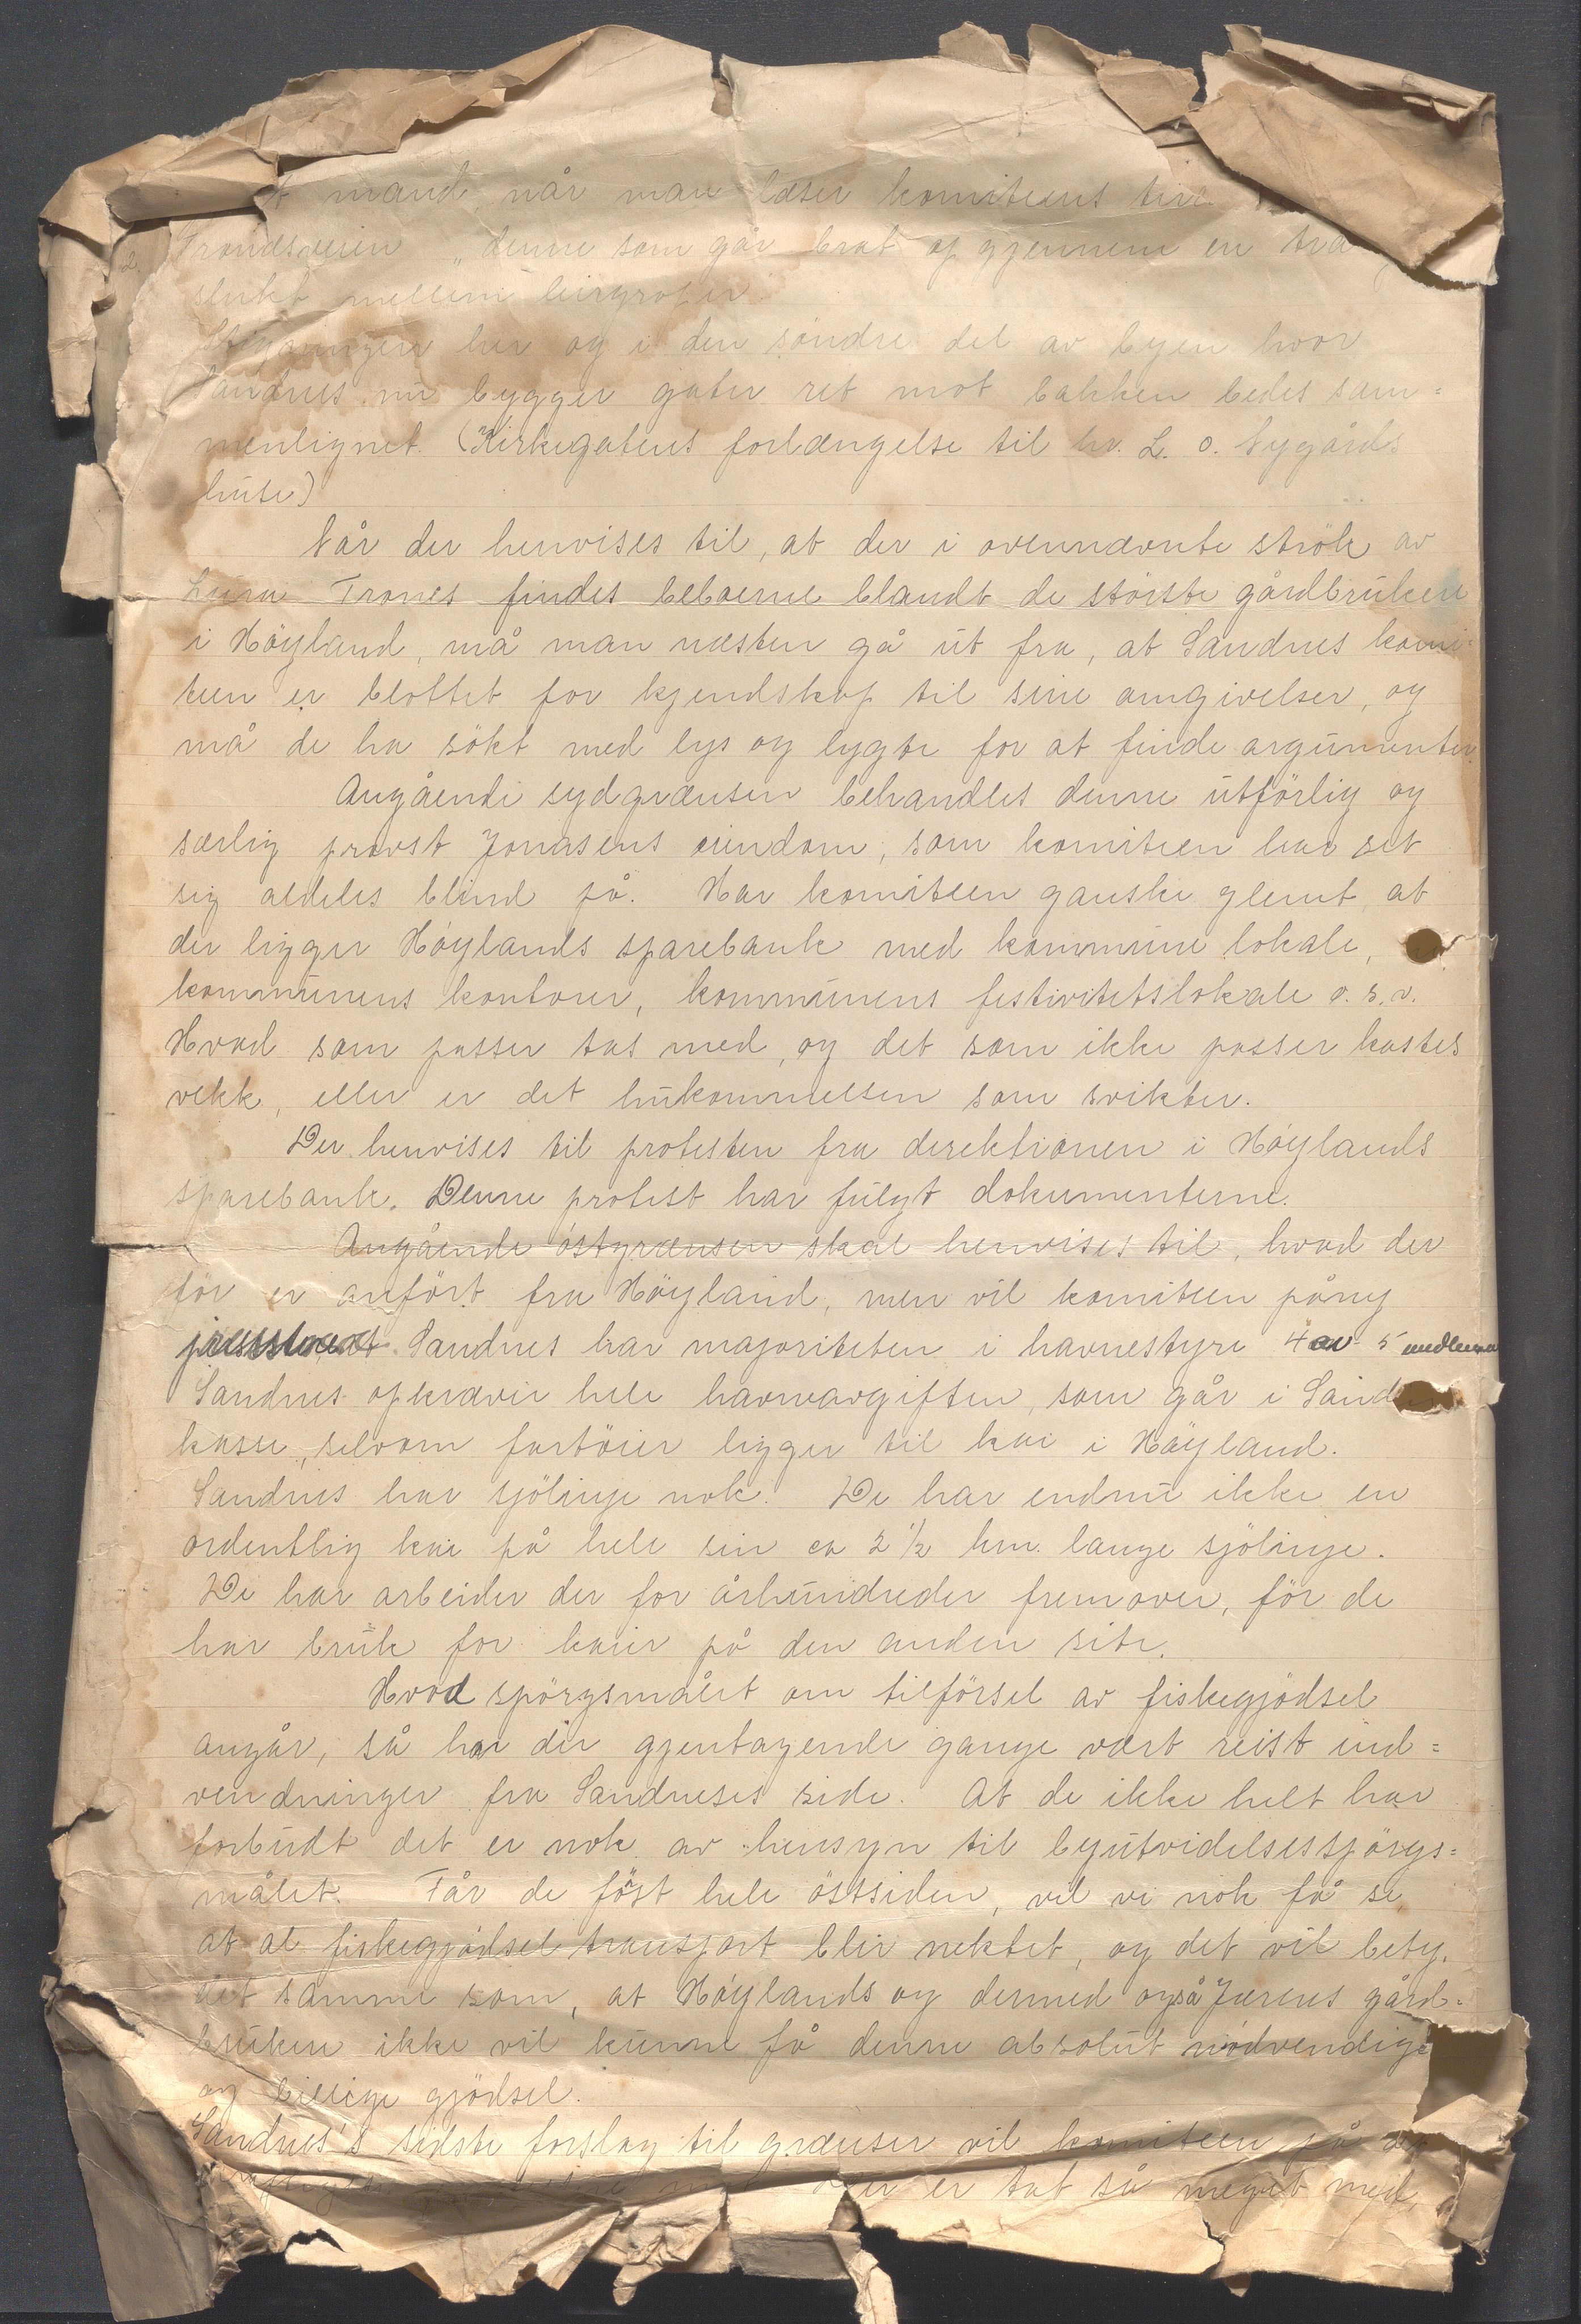 mand, når man læser komiteens
Tronesveien „denne som går brat op gjennem en
slukt mellem leirgroper".
Stigningen her og i den söndre del av byen hvor
Sandnes nu bygger gater ret mot bakken bedes sam=
menlignet. (Kirkegatens forlængelse til hr. L. O. Nygårds
huse)
Når der henvises til, at der i ovennævnte strök av
Lura Trones findes beboerne blandt de störste gårdbrukere
i Höyland, må man næsten gå ut fra, at Sandnes komi=
teen er blottet for kjendskap til sine omgivelser, og
må de ha sökt med lys og lygte for at finde argumenter.
Angående sydgrænsen behandles denne utförlig og
særlig provst Jonasens eiendom, som komiteen har set
sig aldeles blind på. Har komiteen ganske glemt, at
der ligger Höylands sparebank med kommune lokale,
kommunens kontorer, kommunens festivitetslokale o. s. v.
Hvad som passer tas med, og det som ikke passer kastes
vekk, eller er det hukommelsen som svikter.
Der henvises til protesten fra derektionen i Höylands
sparebank. Denne protest har fulgt dokumenterne.
Angående östgrænsen skal henvises til, hvad der
för er anfört fra Höyland, men vil komiteen påny
Sandnes har majoriteten i havnestyre 4 av 5 medlemmer
Sandnes opkrævir hele havneavgiften, som går i Sand
kasse, selvom fartöier ligger til kai i Höyland.
Sandnes har sjölinje nok. De har endnu ikke en
ordentlig kai på hele sin ca 2 ½ km. lange sjölinje.
De har arbeider der for århundreder fremover, för de
har bruk for kaier på den anden side.
Hvad spörgsmålet om tilförsel av fiskegjödsel
angår, så har der gjentagende gange vært reist ind=
vendninger fra Sandneses side. At de ikke helt har
forbudt det er nok av hensyn til byutvidelsesspörgs=
målet. Får de först hele östsiden, vil vi nok få se
at al fiskegjödsel transport blir nektet, og det vil bety.
det samme som, at Höylands og dermed også Jærens gård=
brukere ikke vil kunne få denne absolut nödvendige
og billige gjödsel.
Sandnes's sidste forslag til grænser vil komiteen på
er tat så meget med,